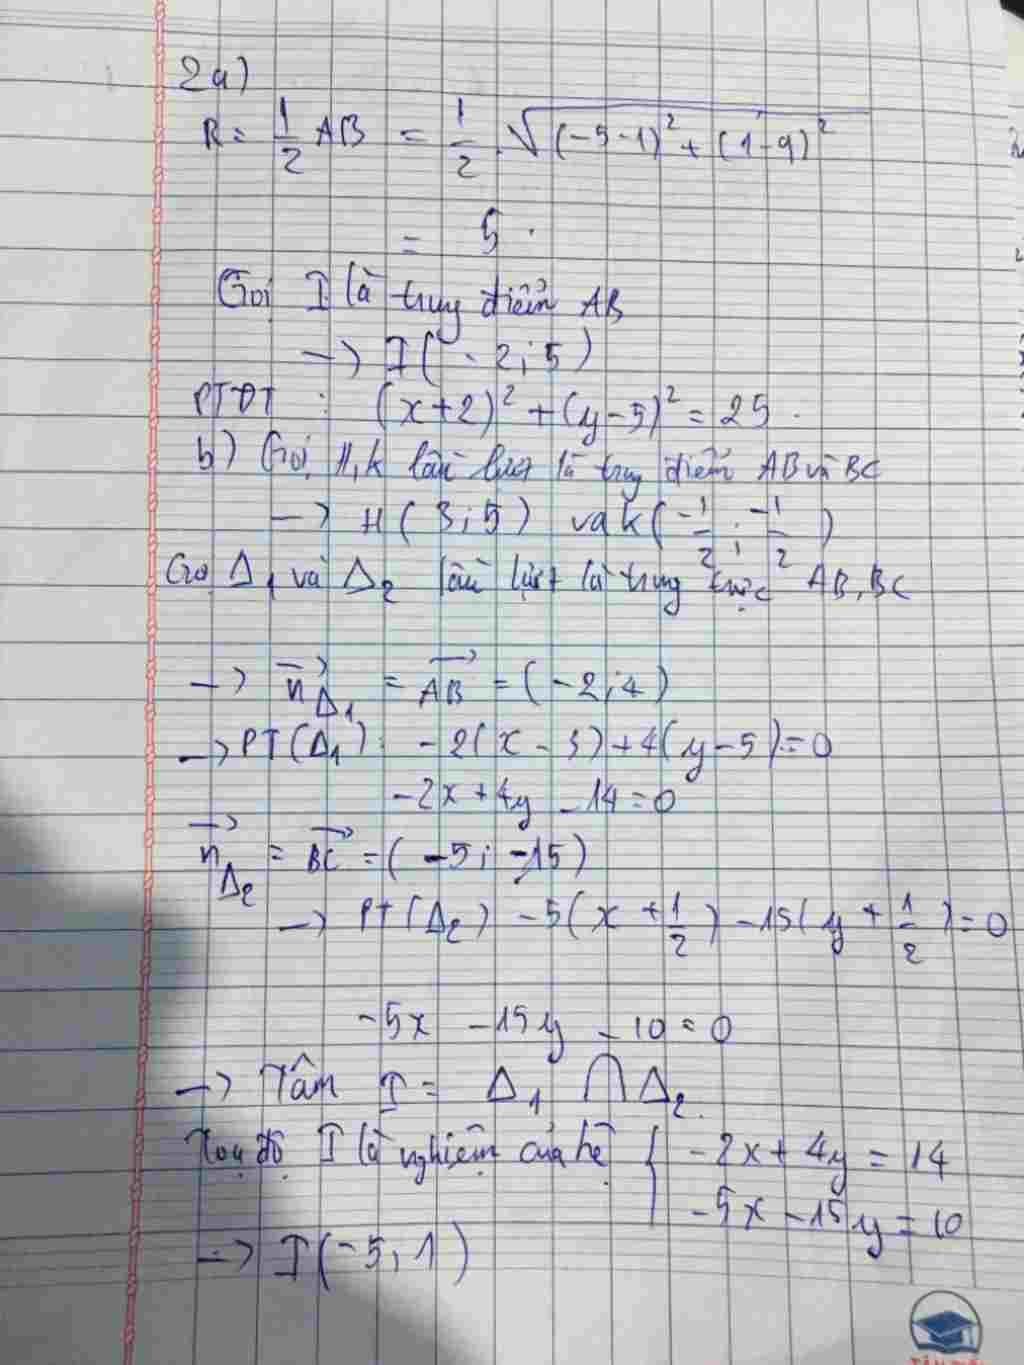 2a)
R = 1/2 AB = 1/2 . √((-5-1)² + (1-9)²)
= 5.
Gọi I là trung điểm AB
→ I(-2; 5)
PTĐT : (x+2)² + (y-5)² = 25.
b) Gọi H, K lần lượt là trung điểm AB và BC
→ H(3; 5) và K(-1/2; -1/2)
Gọi Δ₁ và Δ₂ lần lượt là trung trực AB, BC
→ n⃗Δ₁ = AB⃗ = (-2; 4)
→ PT(Δ₁): -2(x-3) + 4(y-5) = 0
-2x + 4y - 14 = 0
n⃗Δ₂ = BC⃗ = (-5; -15)
→ PT(Δ₂) -5(x + 1/2) - 15(y + 1/2) = 0
-5x - 15y - 10 = 0
→ Tâm I = Δ₁ ∩ Δ₂.
Toạ độ I là nghiệm của hệ { -2x + 4y = 14
-5x - 15y = 10
→ I(-5; 1)